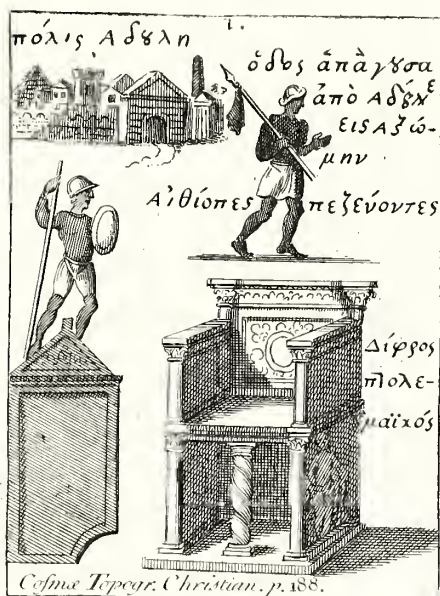 1.
πόλις Αδȣλη
ὁδὸς ἀπάγȣσα
ἀπὸ Αδȣλε
εἰς Αξώ-
μην
Αἰθίοπες πεζεύοντες
Δίφρος
πτολε-
μαϊκός
Cosmæ Topogr. Christian. p. 188.